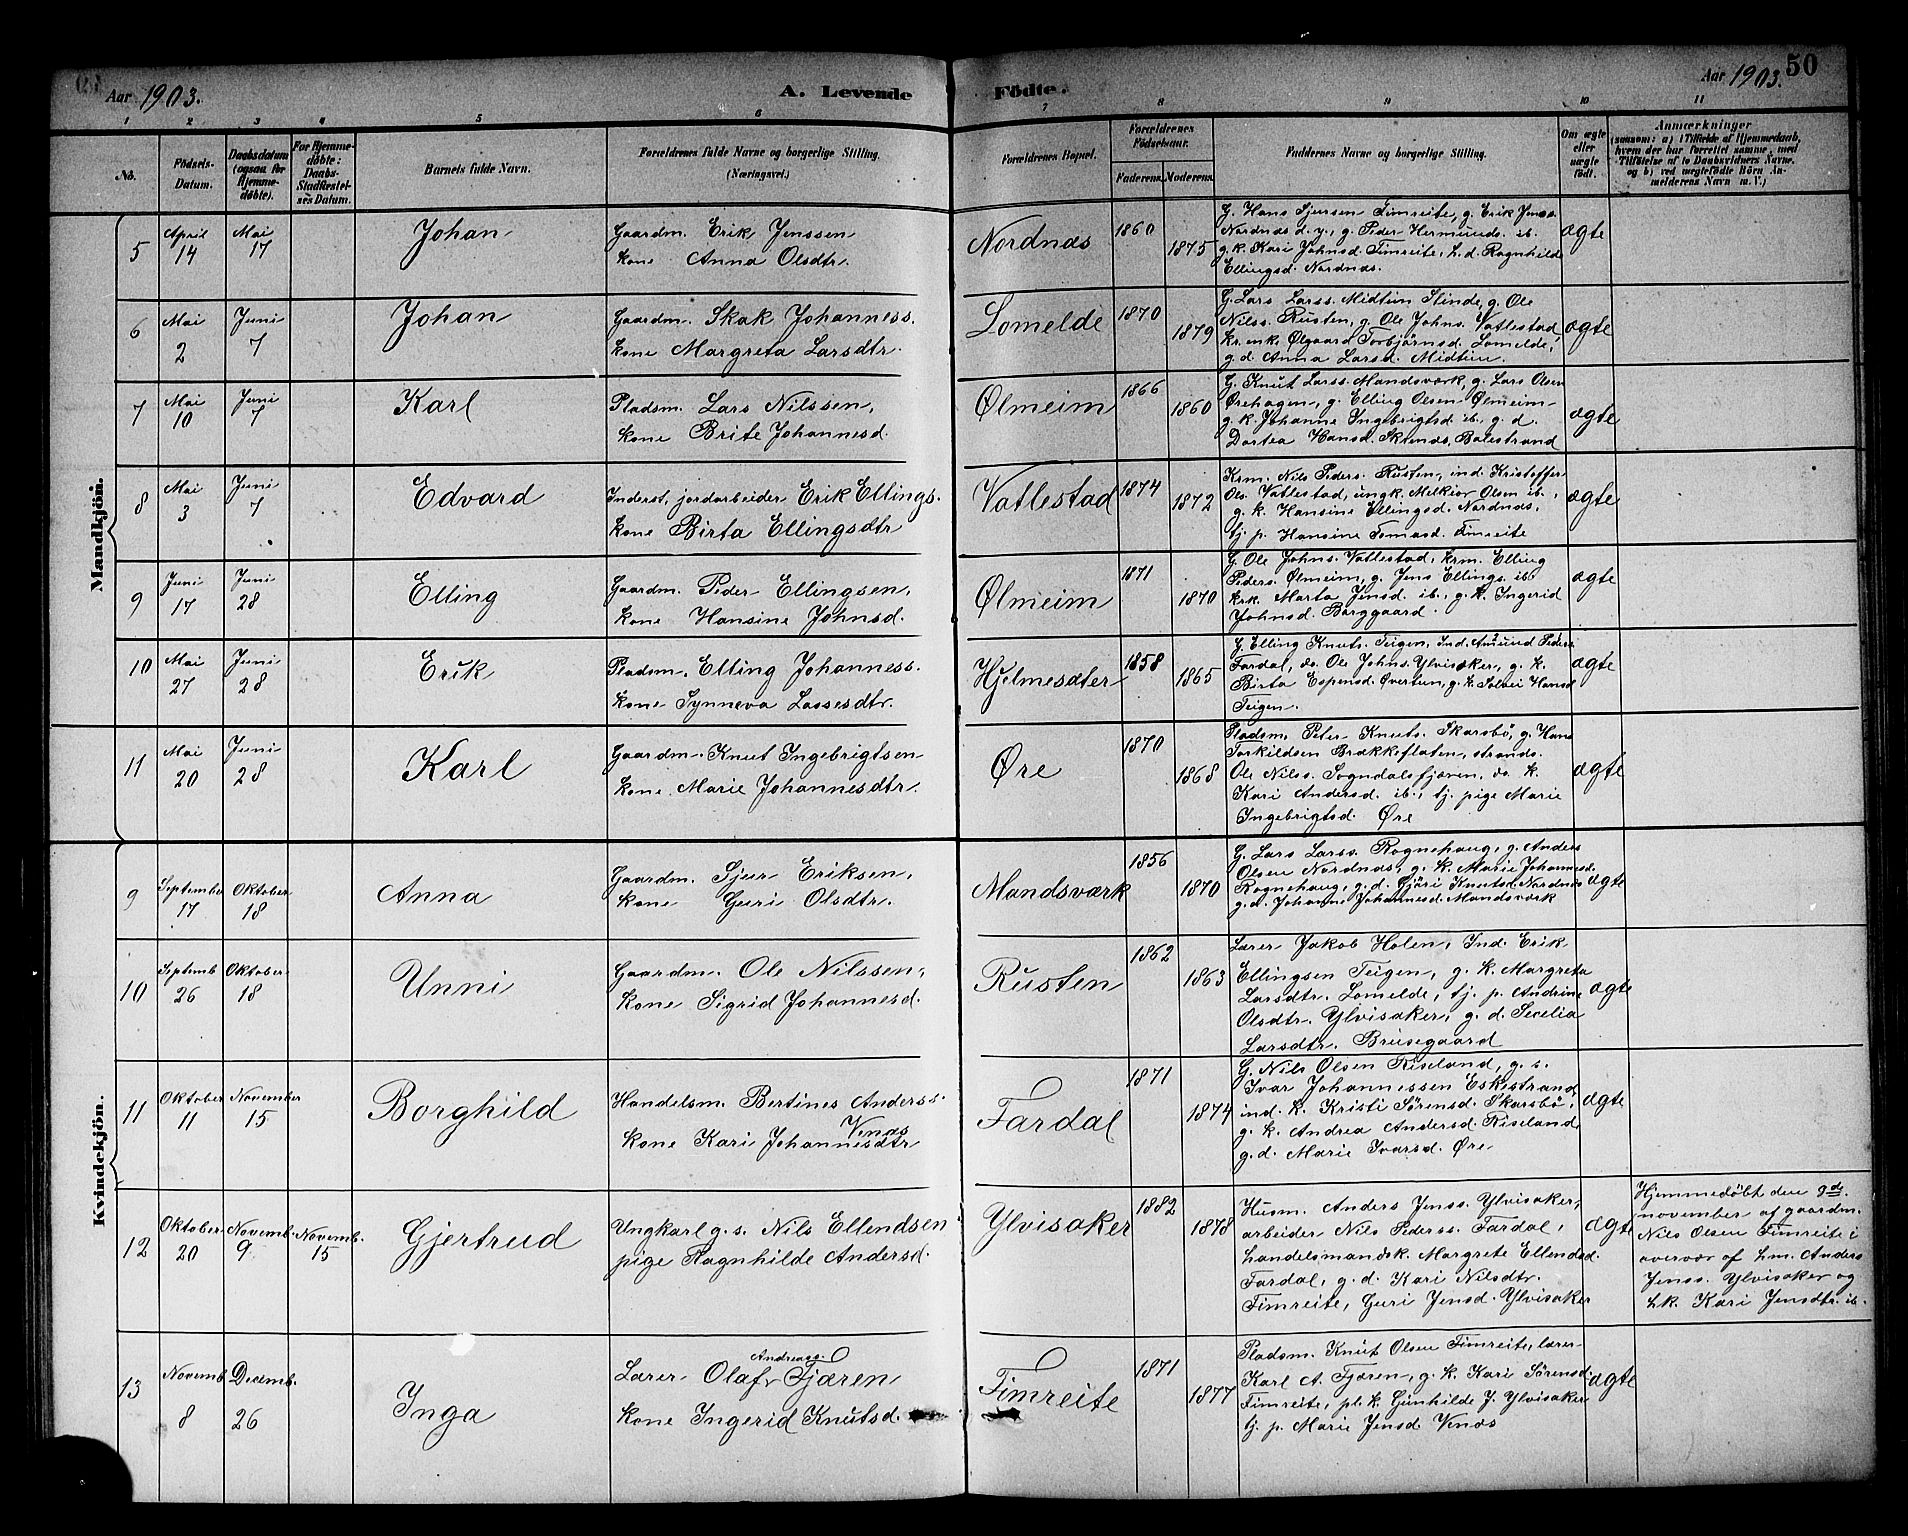 Aar 1903.
A. Levende Födte.
Aar 1903.
50
1 2 3 4 5 6 7 8 9 10 11
No.
Födsels-
Datum.
Daabsdatum
(ogsaa for
Hjemme-
döbte).
For Hjemme-
döbte:
Daabs-
Stadfæstel-
ses Datum.
Barnets fulde Navn.
Forældrenes fulde Navne og borgerlige Stilling.
(Næringsvei.)
Forældrenes Bopæl.
Forældrenes
Födselsaar.
Faderens. Moderens.
Faddernes Navne og borgerlige Stilling.
Om ægte
eller
uægte
født.
Anmærkninger
(saasom: a) i Tilfælde af Hjemmedaab,
hvem der har forrettet samme, med
Tilföielse af to Daabsvidners Navne,
og b) ved uægtefödte Börn An-
melderens Navn m. V.)
Mandkjön.
5
April
14
Mai
17
Johan
Gaardm. Erik Jenssen
kone Anna Olsdtr.
Nordnæs
1860
1875
G. Hans Sjursen Fimreite, g. Erik Jenss.
Nordnæs d. y., g. Peder Hermunds. ib.
g. k. Kari Johnsd. Fimreite, h.d. Ragnhilde
Ellingsd. Nordnæs.
ægte
6
Mai
2
Juni
7
Johan
Gaardm. Skak Johanness.
kone Margreta Larsdtr.
Lomelde
1870
1879
G. Lars Larss. Midtun Slinde, g. Ole
Nilss. Rusten, g. Ole Johns. Vatlestad,
kr. enk. Ølgaard Torbjørnsd. Lomelde,
g.d. Anna Larsd. Midtun.
ægte
7
Mai
10
Juni
7
Karl
Pladsm. Lars Nilssen,
kone Brite Johannesd.
Ølmeim
1866
1860
G. Knut Larss. Mandsværk, g. Lars Olsen
Ørehagen, g. Elling Olsen Ølmeim
g.k. Johanne Ingebrigtsd. ib., g. d.
Dortea Hansd. Balestrand
ægte
8
Mai
3
Juni
7
Edvard
Inderst, jordarbeider Erik Ellings.
kone Birta Ellingsdtr
Vatlestad
1874
1872
Krm. Nils Peders. Rusten, ind. Kristoffer
Ols. Vatlestad, ungk. Melkior Olsen ib.,
g. k. Hansine Ellingsd. Nordnæs,
tj. p. Hansine Tomasd. Fimreite
ægte
9
Juni
17
Juni
28
Elling
Gaardm. Peder Ellingsen,
kone Hansine Johnsd.
Ølmeim
1871
1870
G. Ole Johns. Vatlestad, krm. Elling
Peders. Ølmeim, g. Jens Ellings. ib.
krk. Marta Jensd. ib., g. k. Ingerid
Johnsd. Borggaard.
ægte
10
Mai
27
Juni
28
Erik
Pladsm. Elling Johanness.
kone Synneva Lassesdtr.
Hjelmesæter
1858
1865
G. Elling Knuts. Teigen, Ind. Amund Peders
Fardal, do. Ole Johns. Ylvisaker, g. k.
Birta Espensd. Øvertun, g. k. Solvei Hansd
Teigen.
ægte
11
Mai
20
Juni
28
Karl
Gaardm. Knut Ingebrigtsen
kone Marie Johannesdtr.
Øre
1870
1868
Pladsm. Peter Knuts. Skarsbø, g. Hans
Torkildsen Brækkeflaten, strands.
Ole Nilss. Sogndalsfjæren, do. k.
Kari Andersd. ib., tj. pige Marie
Ingebrigtsd. Øre
ægte
Kvindekjön.
9
September
17
Oktober
18
Anna
Gaardm. Sjur Eriksen,
kone Guri Olsdtr.
Mandsværk
1856
1870
G. Lars Larss. Rognehaug, g. Anders
Olsen Nordnæs, g. k. Marie Johannesd.
Rognehaug, g.d. Gjøri Knutsd. Nordnæs
g.d. Johanne Johannesd. Mandsværk
ægte
10
Septemb
26
Oktober
18
Unni
Gaardm. Ole Nilssen,
kone Sigrid Johannesd.
Rusten
1862
1863
Lærer Jakob Holen, Ind. Erik
Ellingsen Teigen, g. k. Margreta
Larsdtr. Lomelde, tj. p. Andrine
Olsdtr. Ylvisaker, g. d. Secelia
Larsdtr. Brusegaard
ægte
11
Oktober
11
November
15
Borghild
Handelsm. Bertines Anderss.
Venæs
kone Kari Johannesdtr
Fardal
1871
1874
G. Nils Olsen Riseland, g. s.
Ivar Johannessen Eskestrand,
ind. k. Kristi Sørensd. Skarsbø,
g. k. Andrea Andersd. Riseland,
g.d. Marie Ivarsd. Øre
ægte
12
Oktober
20
Novemb.
9
Novemb.
15
Gjertrud
Ungkarl g. s. Nils Ellendsen
pige Ragnhilde Andersd.
Ylvisaker
1882
1878
Husm. Anders Jenss. Ylvisaker,
arbeider Nils Pederss. Fardal,
handelsmandsk. Margrete Ellendsd.
Fardal, g. d. Kari Nilsdtr.
Fimreite, Guri Jensd. Ylvisaker
ægte
Hjemmedöbt den 9de
november af gaardm.
Nils Olsen Fimreite i
overvær af hm. Anders
Jenss. Ylvisaker og
hk. Kari Jensdtr. ib.
13
Novemb
8
Decemb.
26
Inga
Andreass.
Lærer Olaf Fjæren
kone Ingerid Knutsd.
Fimreite
1871
1877
Pladsm. Knut Olsen Fimreite, lærer
Karl A. Fjæren, g. k. Kari Sørensd.
Fimreite, pl. k. Gunhilde J. Ylvisaker
tj. p. Marie Jensd Venæs
ægte